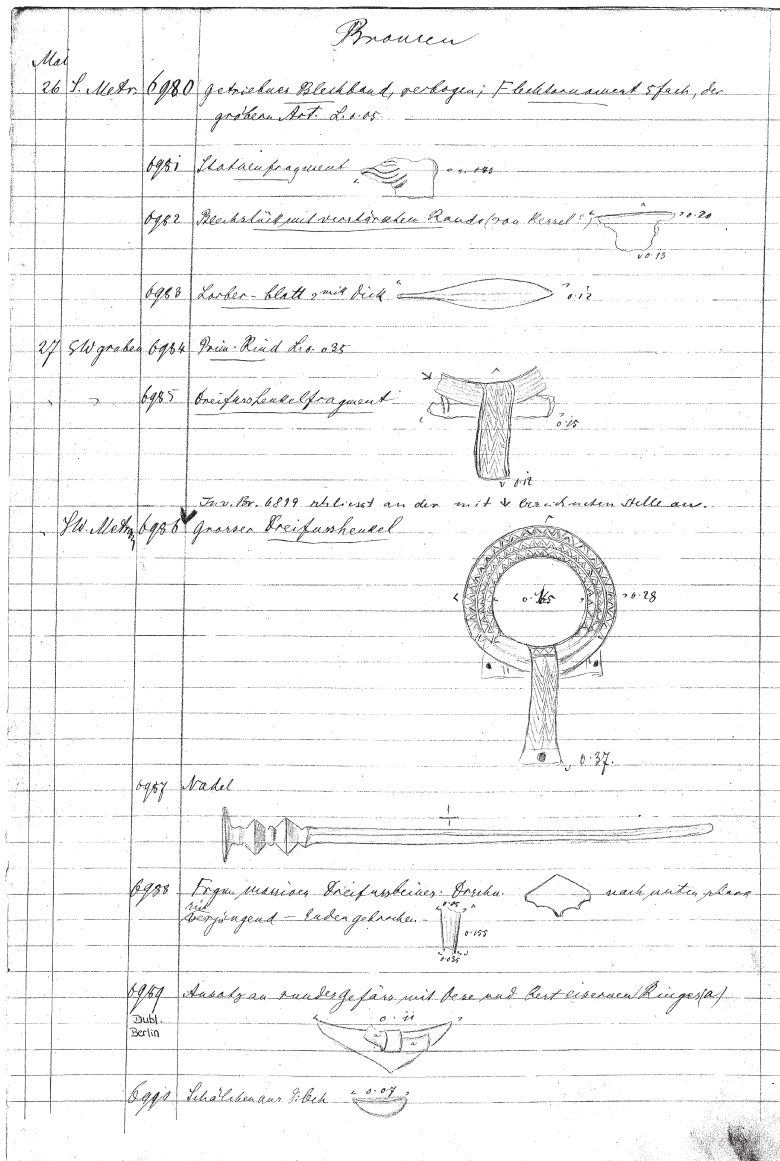 Bronzen
Mai
26 S. Metr. 6980 getriebnes Blechband, verbogen; Flechtornament 5fach, der
gröbern Art. L. 0.05
6981 Statuenfragment 0.035
6982 Blechstück mit verstärktem Rande (von Kessel?) 0.20
0.13
6983 Lorber-blatt, mit dick 0.12
27 SW graben 6984 Prim. Rind L. 0.035
" " 6985 Dreifusshenkelfragment
0.15
0.12
Inv. Br. 6899 schliesst an der mit ↓ bezeichneten Stelle an.
SW. Metr. 6986 grosser Dreifusshenkel
0.165 0.28
0.37.
6987 Nadel
1/1
6988 Frgm. massives Dreifussbeines. nach unten
sich
verjüngend – Enden gebrochen –
0.05
0.155
0.035
6989 Ansatz an rundes Gefäss mit Oese und Rest eisernen Ringes (a)
Dubl.
Berlin
0.11
a a
6990 Schälchen aus Blech 0.07